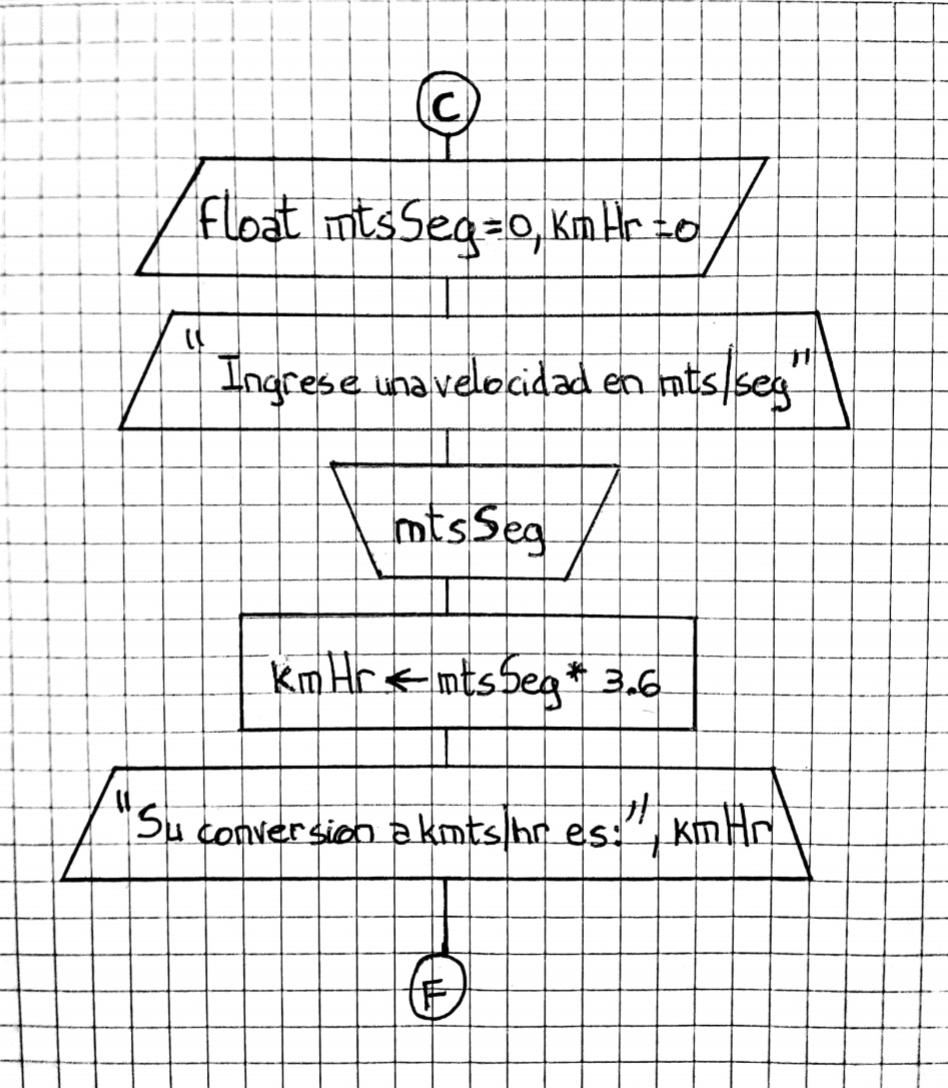 C
float mtsSeg=0, KmHr=0
"Ingrese una velocidad en mts/seg"
mtsSeg
KmHr ← mtsSeg * 3.6
"Su conversion a kmts/hr es:", KmHr
F